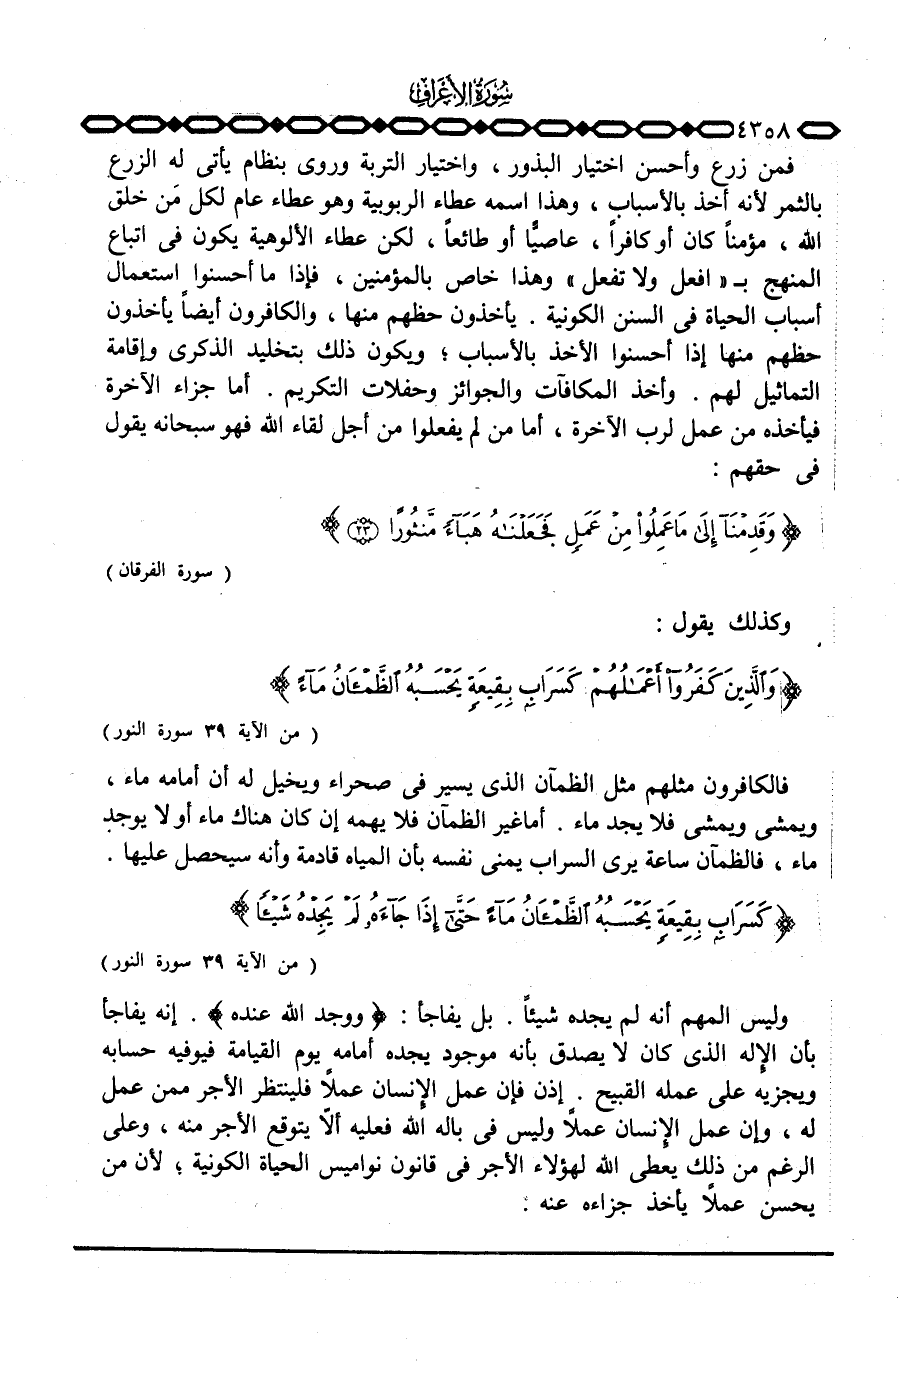 سُورَةُ الأَعْرَافِ
٤٣٥٨
فمن زرع وأحسن اختيار البذور ، واختيار التربة وروى بنظام يأتى له الزرع
بالثمر لأنه أخذ بالأسباب ، وهذا اسمه عطاء الربوبية وهو عطاء عام لكل مَن خلق
الله ، مؤمناً كان أو كافراً ، عاصيًّا أو طائعاً ، لكن عطاء الألوهية يكون فى اتباع
المنهج بـ « افعل ولا تفعل » وهذا خاص بالمؤمنين ، فإذا ما أحسنوا استعمال
أسباب الحياة فى السنن الكونية . يأخذون حظهم منها ، والكافرون أيضاً يأخذون
حظهم منها إذا أحسنوا الأخذ بالأسباب ؛ ويكون ذلك بتخليد الذكرى وإقامة
التماثيل لهم . وأخذ المكافآت والجوائز وحفلات التكريم . أما جزاء الآخرة
فيأخذه من عمل لرب الآخرة ، أما من لم يفعلوا من أجل لقاء الله فهو سبحانه يقول
فى حقهم :
﴿ وَقَدِمْنَآ إِلَىٰ مَا عَمِلُوا۟ مِنْ عَمَلٍ فَجَعَلْنَـٰهُ هَبَآءً مَّنثُورًا ﴿٢٣﴾ ﴾
( سورة الفرقان )
وكذلك يقول :
﴿ وَٱلَّذِينَ كَفَرُوٓا۟ أَعْمَـٰلُهُمْ كَسَرَابٍۭ بِقِيعَةٍ يَحْسَبُهُ ٱلظَّمْـَٔانُ مَآءً ﴾
( من الآية ٣٩ سورة النور )
فالكافرون مثلهم مثل الظمآن الذى يسير فى صحراء ويخيل له أن أمامه ماء ،
ويمشى ويمشى فلا يجد ماء . أماغير الظمآن فلا يهمه إن كان هناك ماء أو لا يوجد
ماء ، فالظمآن ساعة يرى السراب يمنى نفسه بأن المياه قادمة وأنه سيحصل عليها .
﴿ كَسَرَابٍۭ بِقِيعَةٍ يَحْسَبُهُ ٱلظَّمْـَٔانُ مَآءً حَتَّىٰٓ إِذَا جَآءَهُۥ لَمْ يَجِدْهُ شَيْـًٔا ﴾
( من الآية ٣٩ سورة النور )
وليس المهم أنه لم يجده شيئاً . بل يفاجأ : ﴿ ووجد الله عنده ﴾ . إنه يفاجأ
بأن الإله الذى كان لا يصدق بأنه موجود يجده أمامه يوم القيامة فيوفيه حسابه
ويجزيه على عمله القبيح . إذن فإن عمل الإنسان عملاً فلينتظر الأجر ممن عمل
له ، وإن عمل الإنسان عملاً وليس فى باله الله فعليه ألاّ يتوقع الأجر منه ، وعلى
الرغم من ذلك يعطى الله لهؤلاء الأجر فى قانون نواميس الحياة الكونية ؛ لأن من
يحسن عملاً يأخذ جزاءه عنه :